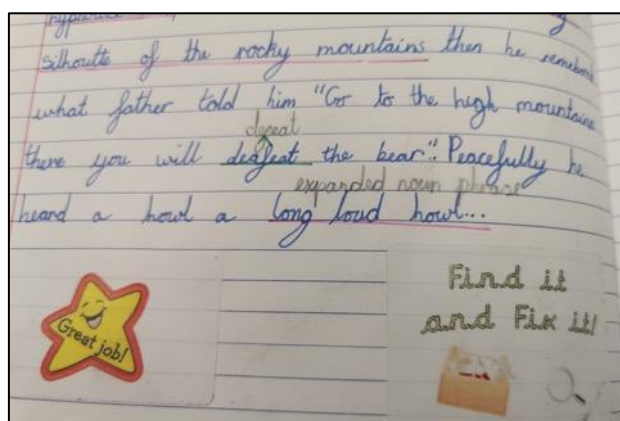 silhoutte of the rocky mountains then he
what father told him "Go to the high mountains
defeat
there you will deafeat the bear". Peacefully he
expanded noun phrase
heard a howl a long loud howl...
Great job!
Find it
and Fix it!